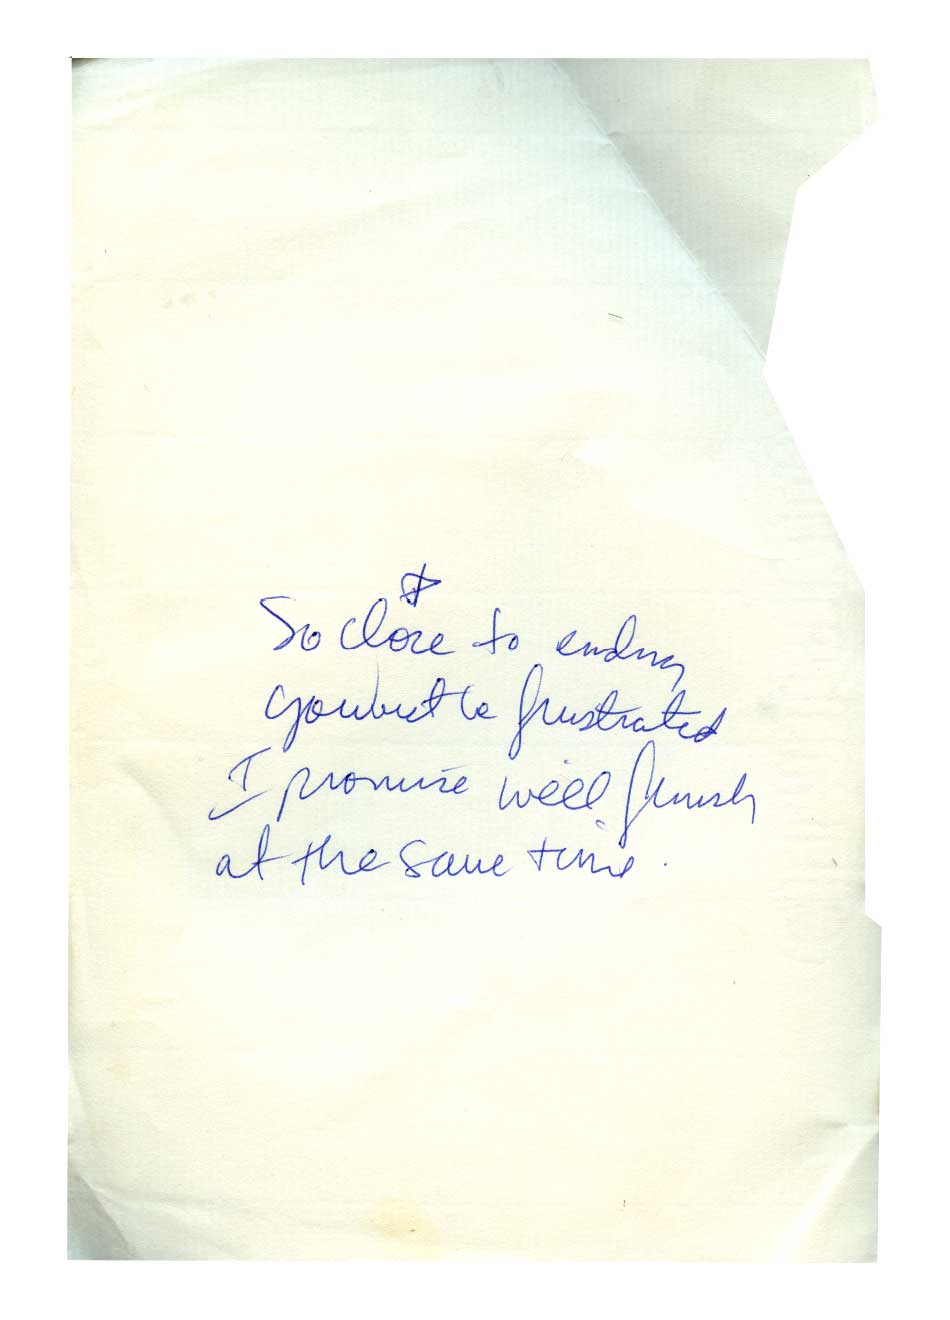 So close to ending
you but be frustrated
I promise will finish
at the same time.